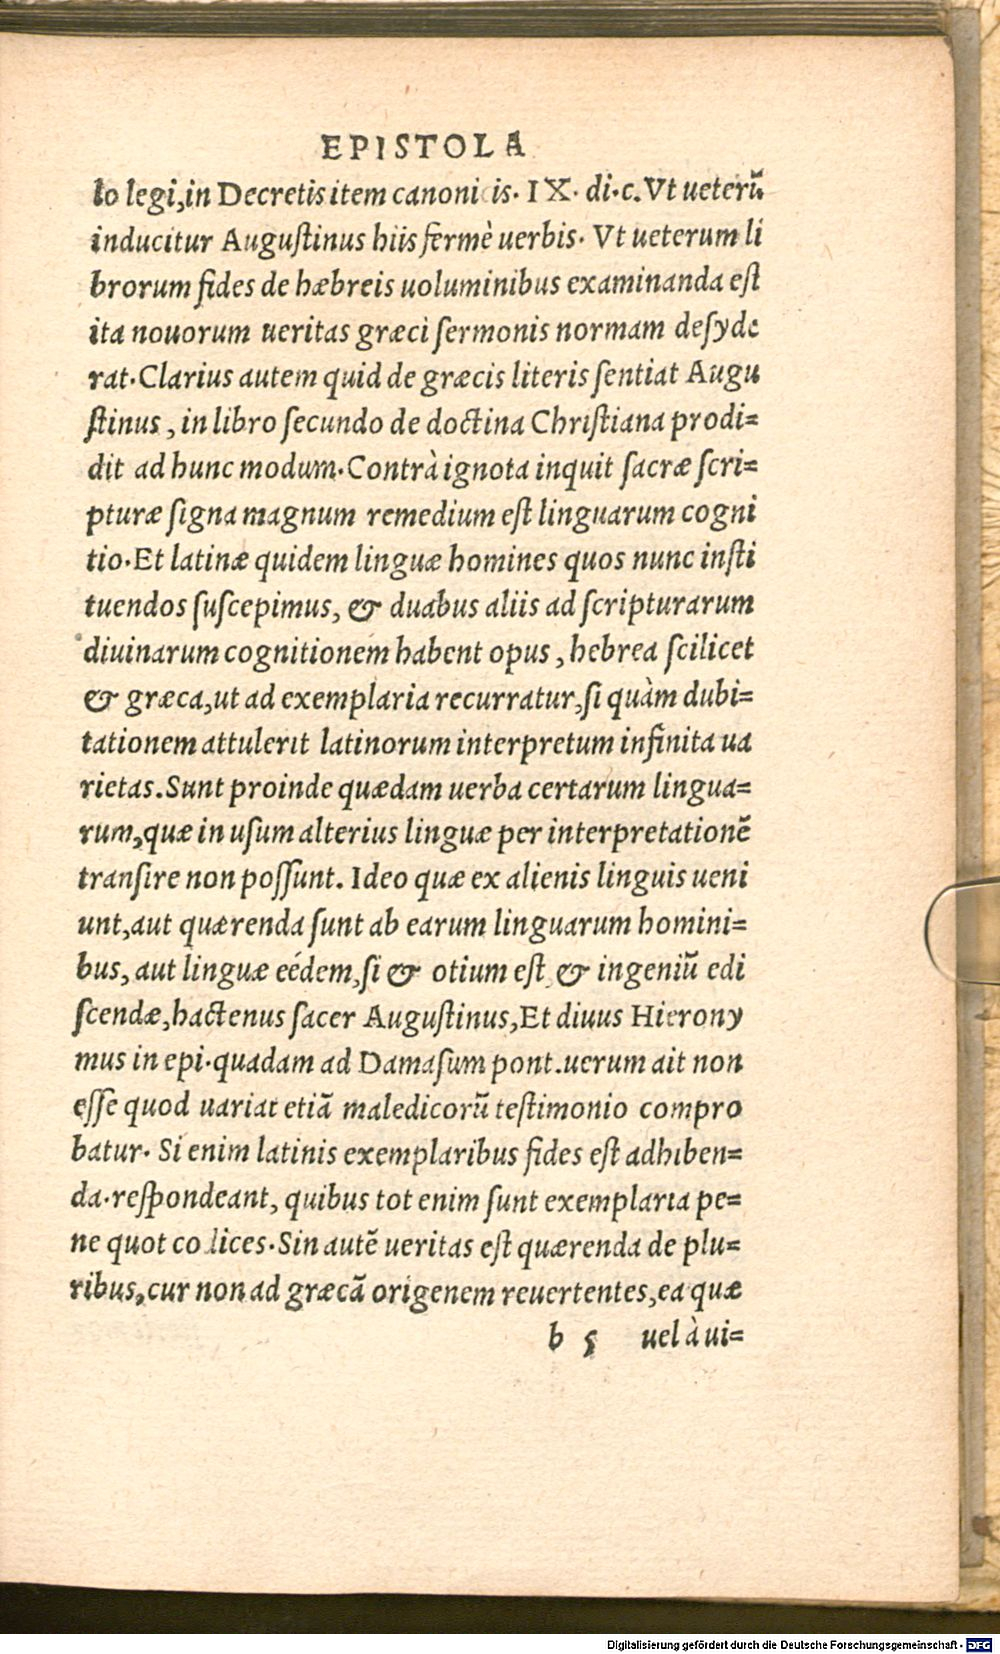 EPISTOLA
lo legi,in Decretis item canonicis. IX. di.c. Vt ueterũ
inducitur Augustinus hiis fermè uerbis. Vt ueterum li
brorum fides de hæbreis uoluminibus examinanda est
ita nouorum ueritas græci sermonis normam desyde
rat. Clarius autem quid de græcis literis sentiat Augu
stinus, in libro secundo de doctina Christiana prodi=
dit ad hunc modum. Contrà ignota inquit sacræ scri=
pturæ signa magnum remedium est linguarum cogni
tio. Et latinæ quidem linguæ homines quos nunc insti
tuendos suscepimus, & duabus aliis ad scripturarum
diuinarum cognitionem habent opus, hebrea scilicet
& græca, ut ad exemplaria recurratur, si quàm dubi=
tationem attulerit latinorum interpretum infinita ua
rietas. Sunt proinde quædam uerba certarum lingua=
rum, quæ in usum alterius linguæ per interpretationẽ
transire non possunt. Ideo quæ ex alienis linguis ueni
unt, aut quærenda sunt ab earum linguarum homini=
bus, aut linguæ eédem, si & otium est & ingeniũ edi
scendæ, hactenus sacer Augustinus, Et diuus Hierony
mus in epi. quadam ad Damasum pont. uerum ait non
esse quod uariat etiã maledicorũ testimonio compro
batur. Si enim latinis exemplaribus fides est adhiben=
da. respondeant, quibus tot enim sunt exemplaria pe=
ne quot codices. Sin autẽ ueritas est quærenda de plu=
ribus, cur non ad græcã origenem reuertentes, ea quæ
b 5 uel à ui=
Digitalisierung gefördert durch die Deutsche Forschungsgemeinschaft - DFG